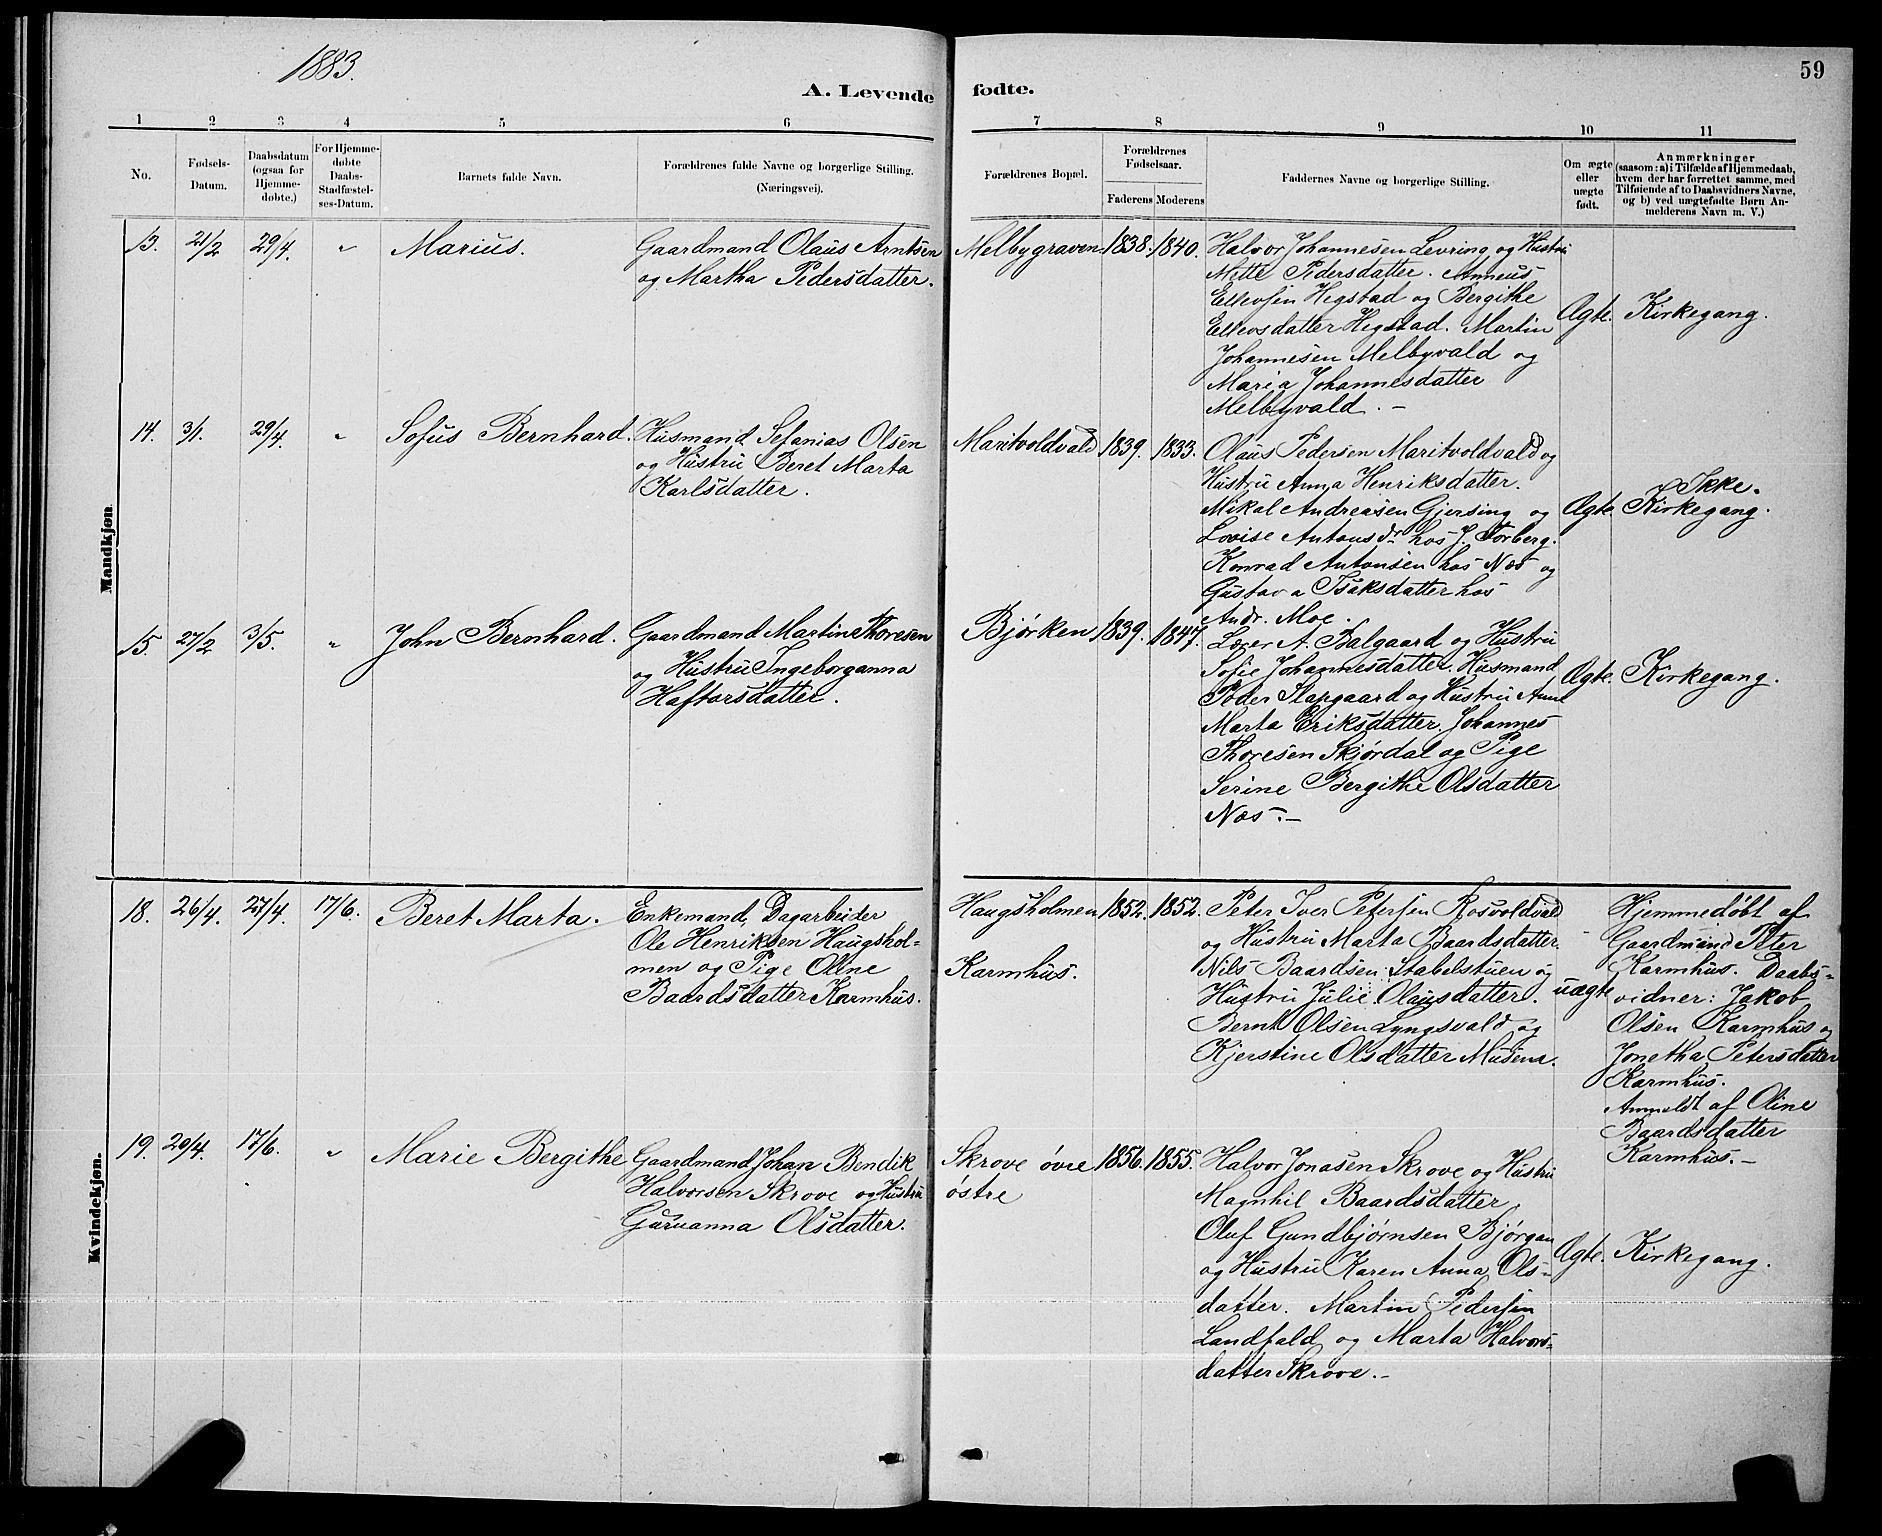 1883.
59
A. Levende fødte.
1 2 3 4 5 6 7 8 9 10 11
No.
Fødsels-
Datum.
Daabsdatum
(ogsaa for
Hjemme-
døbte.)
For Hjemme-
døbte
Daabs-
Stadfæstel-
ses-Datum.
Barnets fulde Navn.
Forældrenes fulde Navne og borgerlige Stilling.
(Næringsvei).
Forældrenes Bopæl.
Forældrenes
Fødselsaar.
Faderens Moderens
Faddernes Navne og borgerlige Stilling.
Om ægte
eller
uægte
født.
Anmærkninger
(saasom: a) i Tilfælde af Hjemmedaab,
hvem der har forrettet samme, med
Tilføiende af to Daabsvidners Navne,
og b) ved uægtefødte Børn An-
melderens Navn m. V.)
Mandkjøn.
13. 21/2 29/4. " Marius.
Gaardmand Olaus Arntsen
og Martha Pedersdatter.
Melbygraven 1838. 1840.
Halvor Johannesen Levring og Hustru
Mette Pedersdatter. Anneus
Ellevsen Hegstad og Bergithe
Ellevsdatter Hegstad. Martin
Johannesen Melbyvald og
Maria Johannesdatter
Melbyvald. -
Ægte. Kirkegang.
14. 3/1. 29/4. " Sofus Bernhard.
Husmand Sefanias Olsen
og Hustru Beret Marta
Karlsdatter.
Maritvoldvald 1839. 1833.
Olaus Pedersen Maritvoldvald og
Hustru Anna Henriksdatter.
Mikal Andreasen Gjersing og
Lovise Antonsdr hos J. Forberg.
Konrad Antonsen hos Næs og
Gustava Isaksdatter hos
Andr. Moe.
Ægte.
Ikke.
Kirkegang.
15. 27/2 3/5. " John Bernhard.
Gaardmand Martin Thoresen
og Hustru Ingeborganna
Haftorsdatter.
Bjørken 1839. 1847.
Lærer A. Balgaard og Hustru
Sofie Johannesdatter. Husmand
Peder Slapgaard og Hustru Anne
Marta Eriksdatter. Johannes
Thoresen Skjørdal og Pige
Serine Bergithe Olsdatter
Næs. -
Ægte. Kirkegang.
Kvindekjøn.
18. 26/4. 27/4. 17/6. Beret Marta.
Enkemand, Dagarbeider
Ole Henriksen Haugshol-
men og Pige Oline
Baardsdatter Karmhus.
Haugsholmen 1852. 1852.
Karmhus.
Peter Iver Petersen Rosvoldvald
og Hustru Marta Baardsdatter.
Nils Baardsen Stabelstuen og
Hustru Julie Olausdatter.
Bernt Olsen Lyngsvald og
Kjerstine Olsdatter Musem.
uægte
Hjemmedøbt af
Gaardmand Peter
Karmhus. Daabs-
vidner: Jakob
Olsen Karmhus og
Jonetha Petersdatter
Karmhus.
Anmeldt af Oline
Baardsdatter
Karmhus. -
19. 20/4. 17/6. " Marie Bergithe
Gaardmand Johan Bendik
Halvorsen Skrove og Hustru
Guruanna Olsdatter.
Skrove øvre 1856. 1855.
østre
Halvor Jonasen Skrove og Hustru
Magnhil Baardsdatter
Oluf Gundbjørnsen Bjørgan
og Hustru Karen Anna Ols-
datter. Martin Pedersen
Landfald og Marta Halvors-
datter Skrove. -
Ægte. Kirkegang.